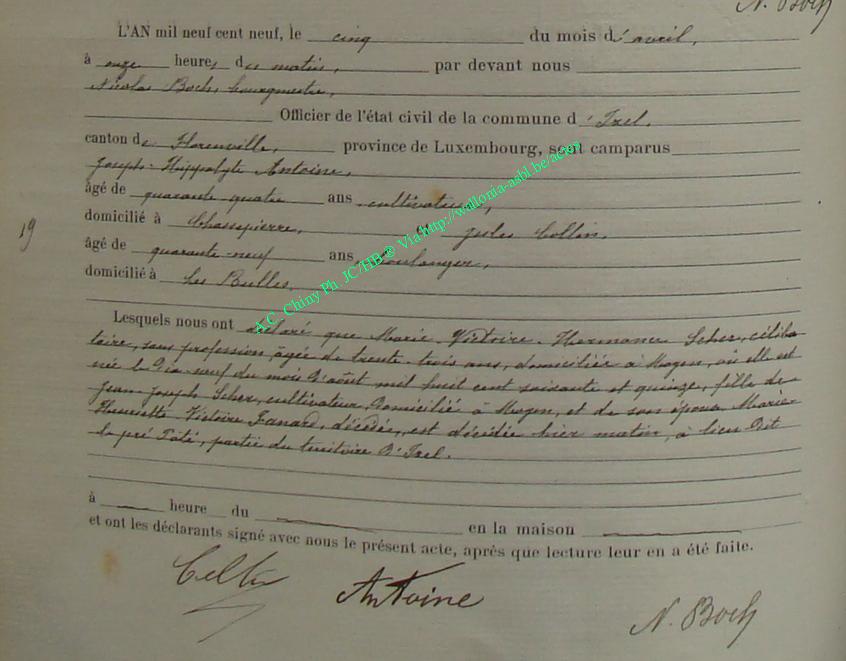 N. Boch
L'AN mil neuf cent neuf, le cinq du mois d'avril,
à onze heures du matin, par devant nous
Nicolas Boch, bourgmestre,
Officier de l'état civil de la commune d'Izel,
canton de Florenville, province de Luxembourg, sont camparus
Joseph-Hippolyte Antoine,
âgé de quarante quatre ans, cultivateur,
domicilié à Chassepierre, et Jules Collin,
19
âgé de quarante-neuf ans, boulanger,
domicilié à Les Bulles,
Lesquels nous ont déclaré que Marie-Victoire-Hermance Scher, céliba-
taire, sans profession, âgée de trente-trois ans, domiciliée à Moyen, où elle est
née le dix-neuf du mois d'août mil huit cent soixante et quinze, fille de
Jean-Joseph Scher, cultivateur, domicilié à Moyen, et de son épouse Marie-
Henriette Victoire, décédée, est décédée hier matin, à lieu dit
le pré, partie du territoire d'Izel.
à heure du en la maison
et ont les déclarants signé avec nous le présent acte, après que lecture leur en a été faite.
Collin
Antoine
N. Boch
A.C. Chiny Ph. JC/HB ® Via http://wallonia-asbl.be/actes